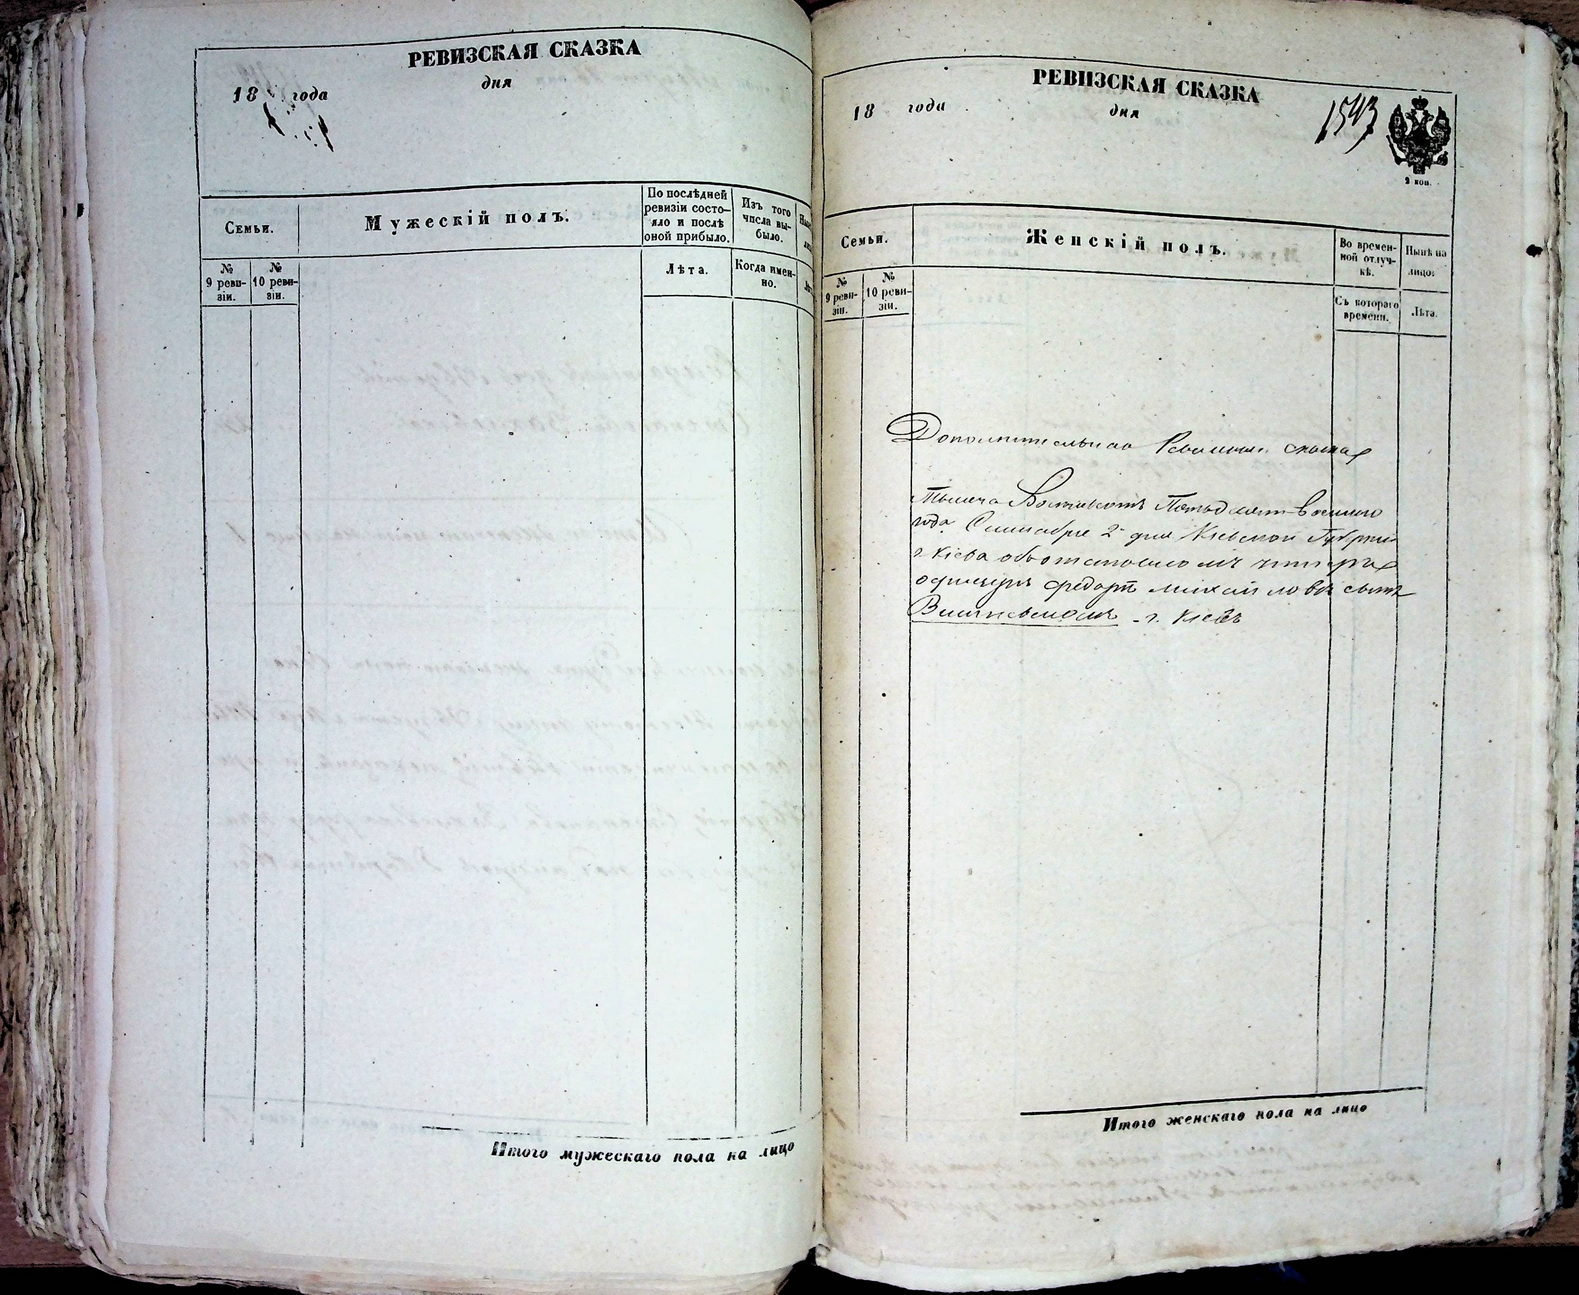 РЕВИЗСКАЯ СКАЗКА
18 года дня
Семьи.
Мужескій полъ.
По послѣдней ревизіи состо-
яло и послѣ оной прибыло.
Изъ того числа вы-
было.
№ 9 реви-
зіи.
№ 10 реви-
зіи.
Лѣта.
Когда имен-
но.
Итого мужескаго пола на лицо
РЕВИЗСКАЯ СКАЗКА
18 года дня
1543
9 коп.
Семьи.
Женскій полъ.
Во времен-
ной отлуч-
кѣ.
Нынѣ на лицо:
№ 9 реви-
зіи.
№ 10 реви-
зіи.
Съ котораго времени.
Лѣта.
Дополнительная Ревизская сказка
Тысяча Восемьсотъ Пятьдесят Восьмого
года Сентября 2 дня Кіевской Губерніи
г. Кіева объ отставномъ
Михайловѣ сынѣ
г. Кіевъ
Итого женскаго пола на лицо